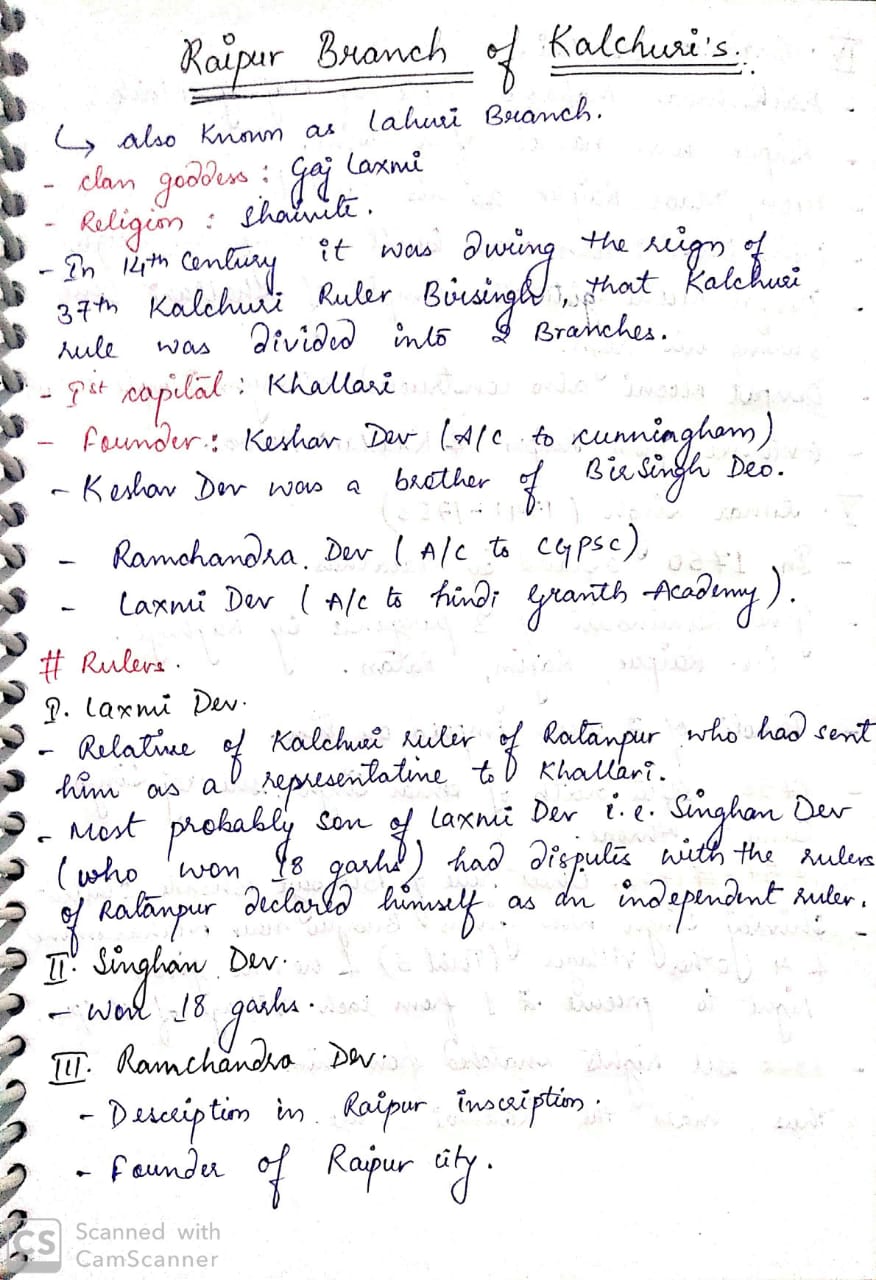 Raipur Branch of Kalchuri's.
↳ also known as Lahuri Branch.
- clan goddess : Gaj Laxmi
- Religion : Shaivite.
- In 14th Century it was during the reign of
37th Kalchuri Ruler Birsingh, that Kalchuri
rule was divided into 2 Branches.
- Ist capital : Khallari
- Founder : Keshav Dev (A/C to cunningham)
- Keshav Dev was a brother of Bir Singh Deo.
- Ramchandra Dev (A/C to CGPSC)
- Laxmi Dev (A/C to hindi Granth Academy).
# Rulers.
I. Laxmi Dev.
- Relative of Kalchuri ruler of Ratanpur who had sent
him as a representative to Khallari.
- Most probably son of Laxmi Dev i.e. Singhan Dev
(who won 18 garhs) had disputes with the rulers
of Ratanpur declared himself as an independent ruler.
II. Singhan Dev.
- Won 18 garhs.
III. Ramchandra Dev.
- Description in Raipur inscription.
- Founder of Raipur city.
CS Scanned with
CamScanner